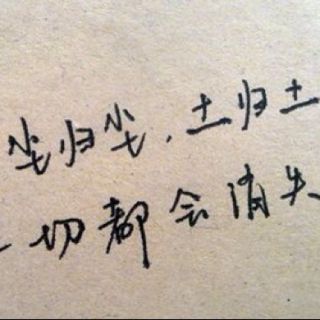 尘归尘，土归土
一切都会消失